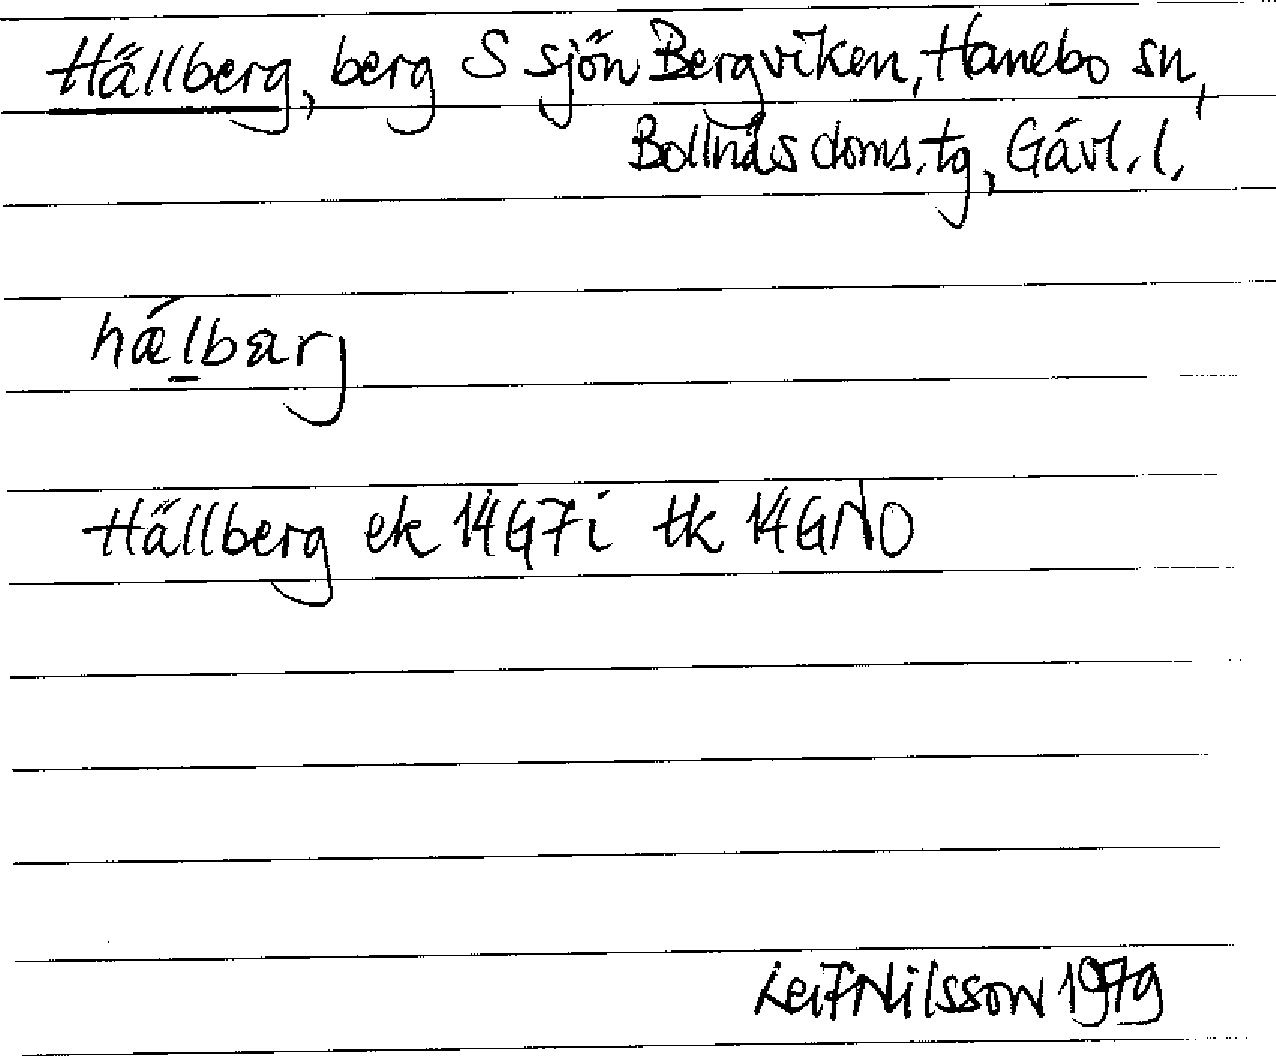 Hällberg, berg S sjön Bergviken, Hanebo sn,
Bollnäs doms.tg, Gävl. l.
hǽl̲bærj
Hällberg ek 14G7i tk 14GNO
Leif Nilsson 1979